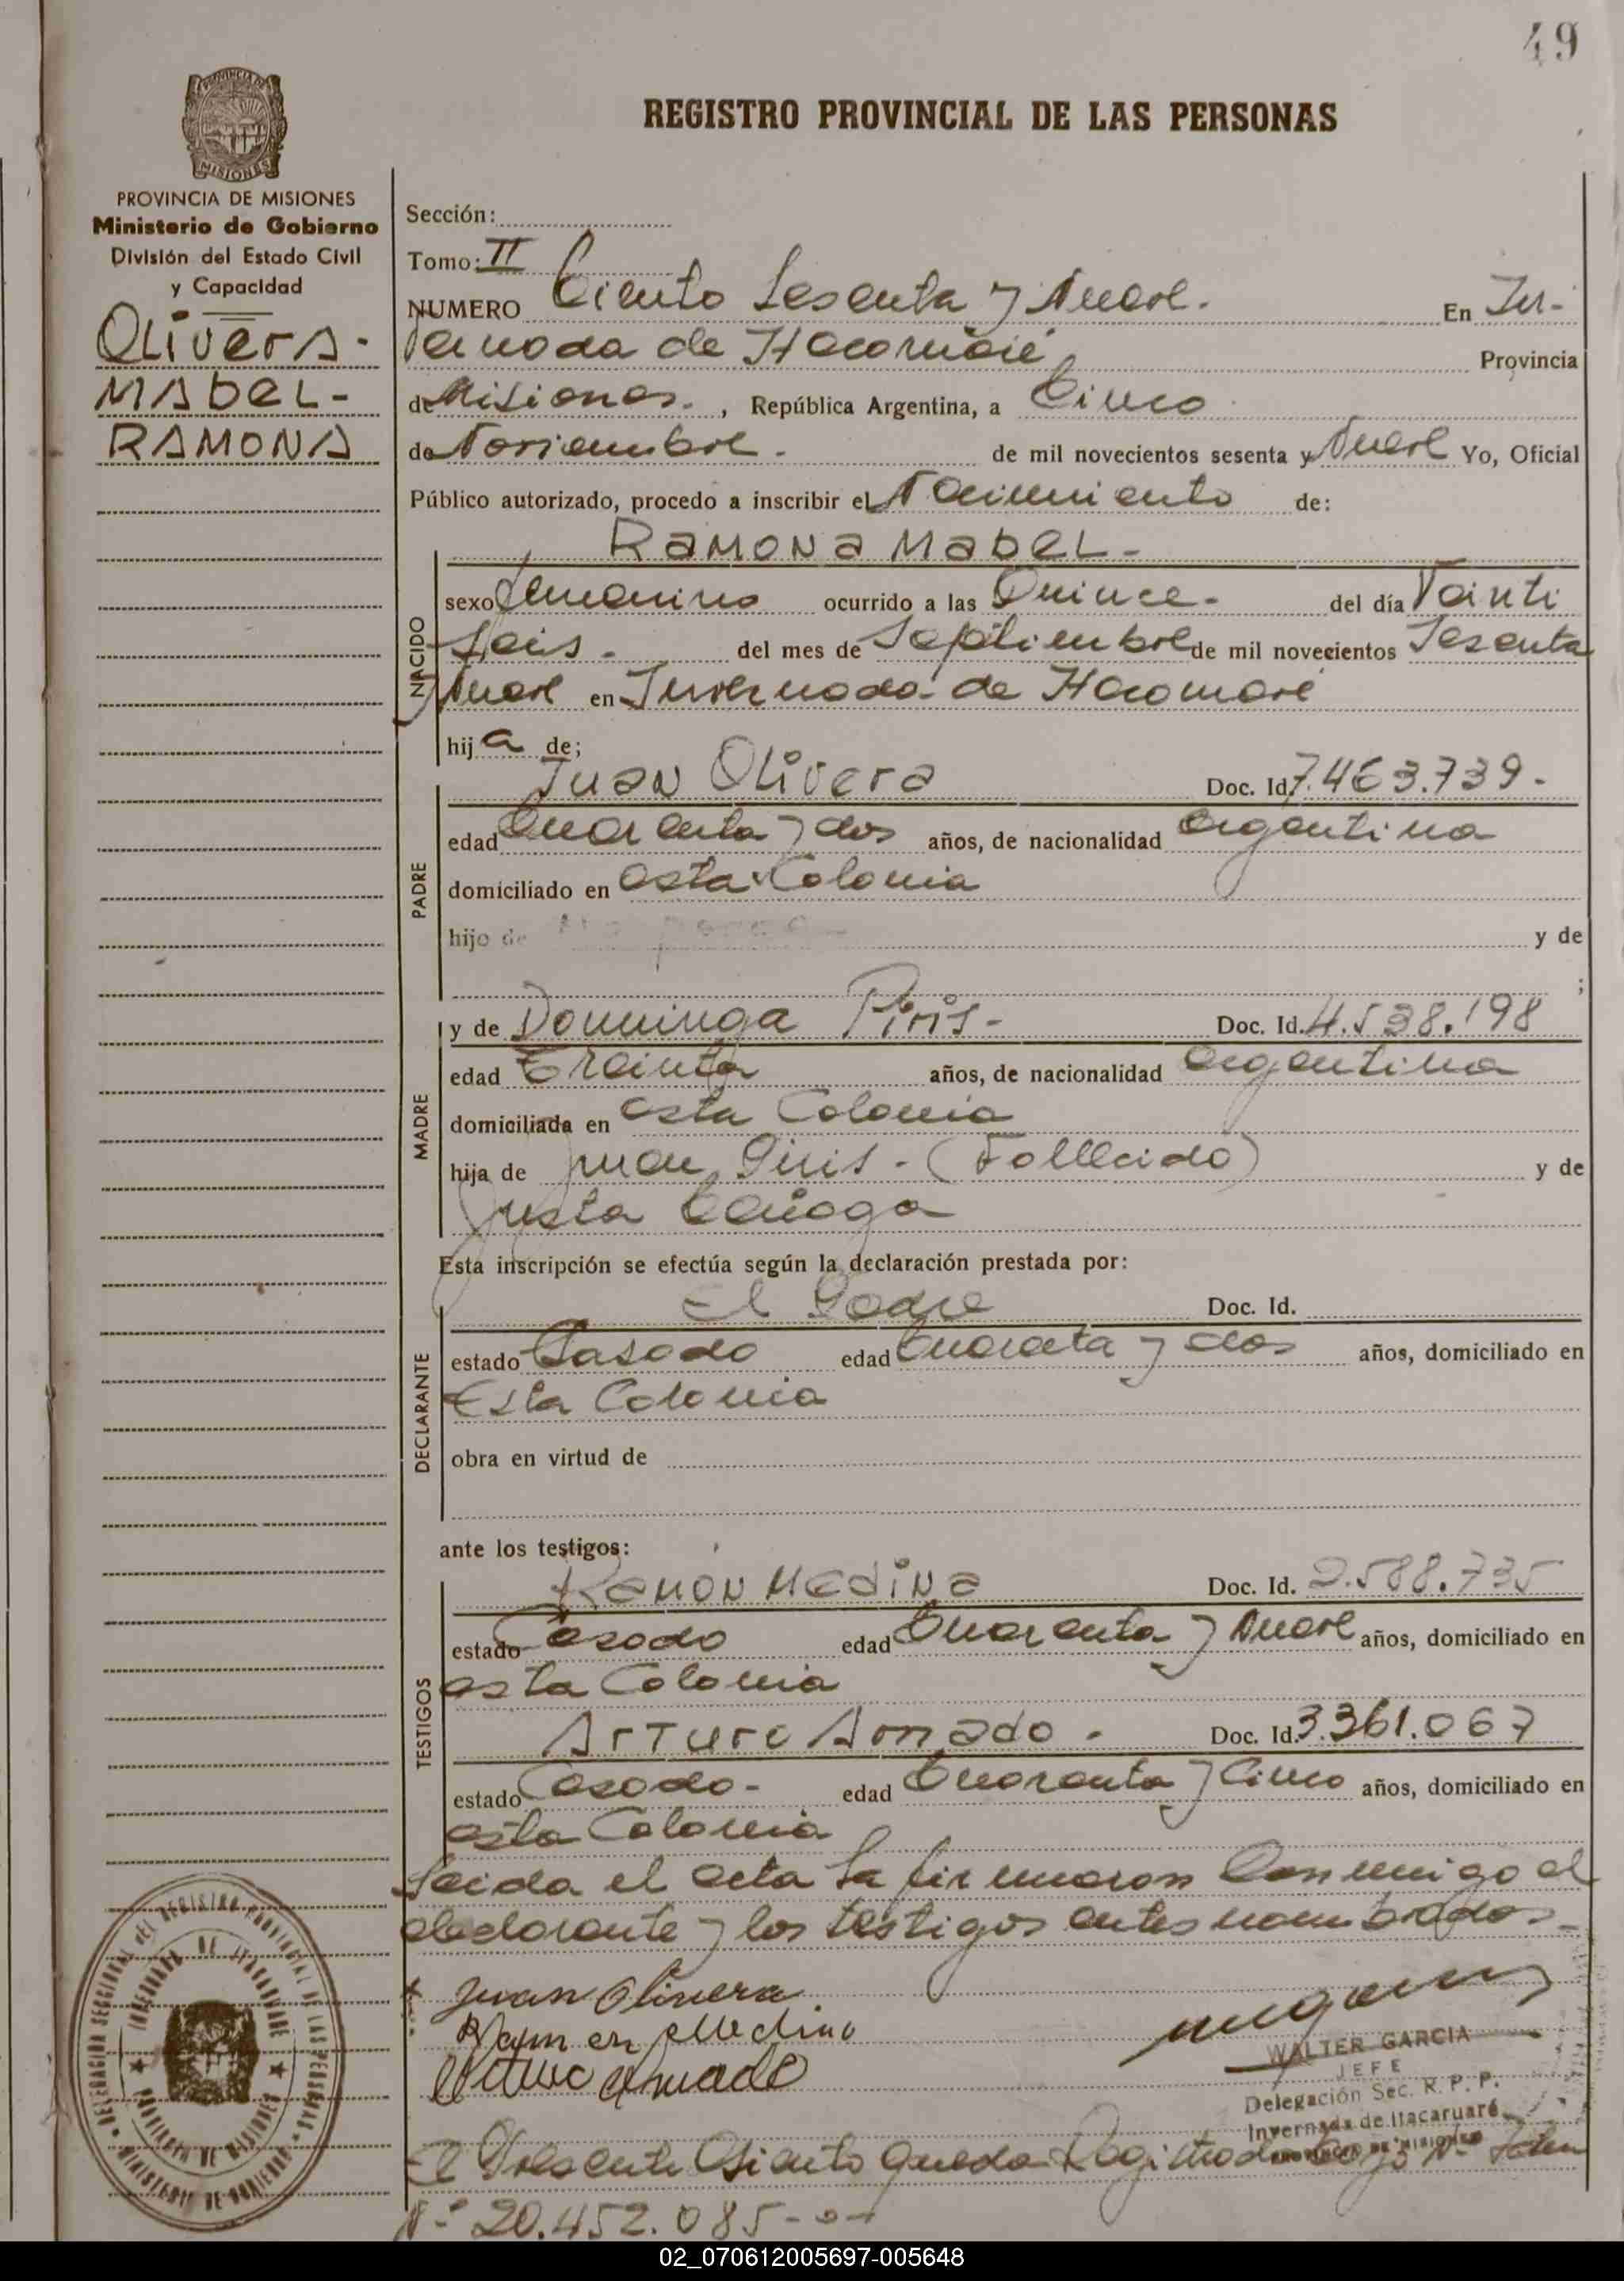 49
REGISTRO PROVINCIAL DE LAS PERSONAS
PROVINCIA DE
MISIONES
PROVINCIA DE MISIONES
Ministerio de Gobierno
División del Estado Civil
y Capacidad
OLIVERA-
MABEL-
RAMONA
Sección:
Tomo: II
NUMERO Ciento Sesenta y Nueve. En In-
vernada de Itacaruaré Provincia
de Misiones. , República Argentina, a Cinco
de Noviembre. de mil novecientos sesenta y Nueve Yo, Oficial
Público autorizado, procedo a inscribir el Nacimiento de:
RAMONA MABEL-
NACIDO
sexo femenino ocurrido a las Quince- del día Veinti
Seis. del mes de Septiembre de mil novecientos Sesenta
y Nueve en Invernada de Itacaruaré
hij a de;
PADRE
Juan Olivera Doc. Id. 7.463.739.-
edad Cuarenta y dos años, de nacionalidad argentina
domiciliado en esta Colonia
hijo de y de
;
MADRE
y de Dominga Piris- Doc. Id. 4.538.198
edad Treinta años, de nacionalidad argentina
domiciliada en esta Colonia
hija de Juan Piris-(Fallecido) y de
Justa
Esta inscripción se efectúa según la declaración prestada por:
DECLARANTE
El Padre Doc. Id.
estado Casado edad Cuarenta y dos años, domiciliado en
Esta Colonia
obra en virtud de
ante los testigos:
TESTIGOS
Ramón Medina Doc. Id. 2.588.735
estado Casado edad Cuarenta y Nueve años, domiciliado en
esta Colonia
Arturo Amado. Doc. Id. 3.361.067
estado Casado- edad Cuarenta y Cinco años, domiciliado en
esta Colonia
Leida el acta la firmaron Conmigo el
declarante y los testigos antes nombrados-
Juan Olivera.
Ramon Medina
Arturo Amado
WALTER GARCIA
JEFE
Delegación Sec. R. P. P.
Invernada de Itacaruaré
PROVINCIA DE MISIONES
El Presente Asiento queda Registrado
Nº 20.452.085-
DELEGACIÓN SECCIONAL DEL REGISTRO PROVINCIAL DE LAS PERSONAS
MINISTERIO DE GOBIERNO
INVERNADA DE ITACARUARE
PROVINCIA DE MISIONES
02_070612005697-005648